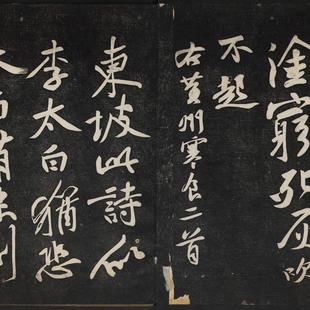 塗窮死灰吹
不起
右黃州寒食二首
東坡此詩似
李太白猶恐
太白有未到